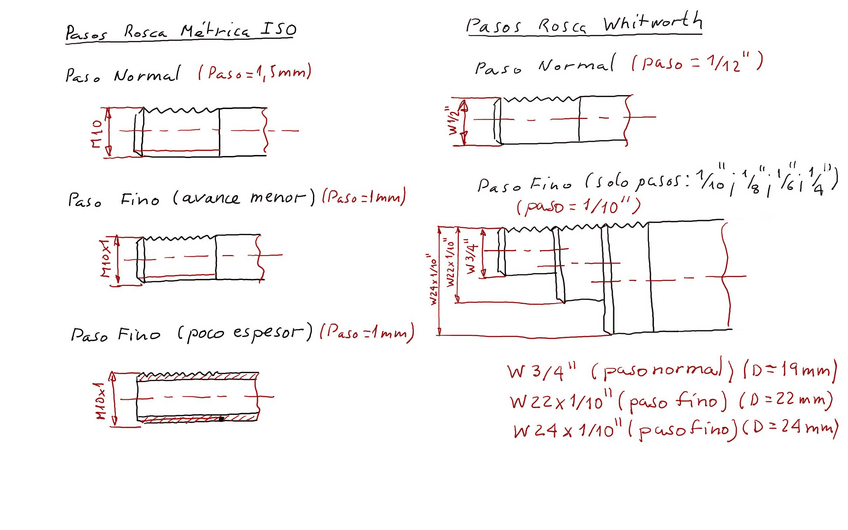 Pasos Rosca Métrica ISO
Paso Normal (Paso=1,5mm)
M10
Paso Fino (avance menor) (Paso=1mm)
M10x1
Paso Fino (poco espesor) (Paso=1mm)
M10x1
Pasos Rosca Whitworth
Paso Normal (paso = 1/12")
W1/2"
Paso Fino (solo pasos: 1/10"; 1/8"; 1/6"; 1/4")
(paso = 1/10")
W24x1/10"
W22x1/10"
W3/4"
W 3/4" (paso normal) (D=19mm)
W22x1/10" (paso fino) (D=22mm)
W24x1/10" (paso fino) (D=24mm)